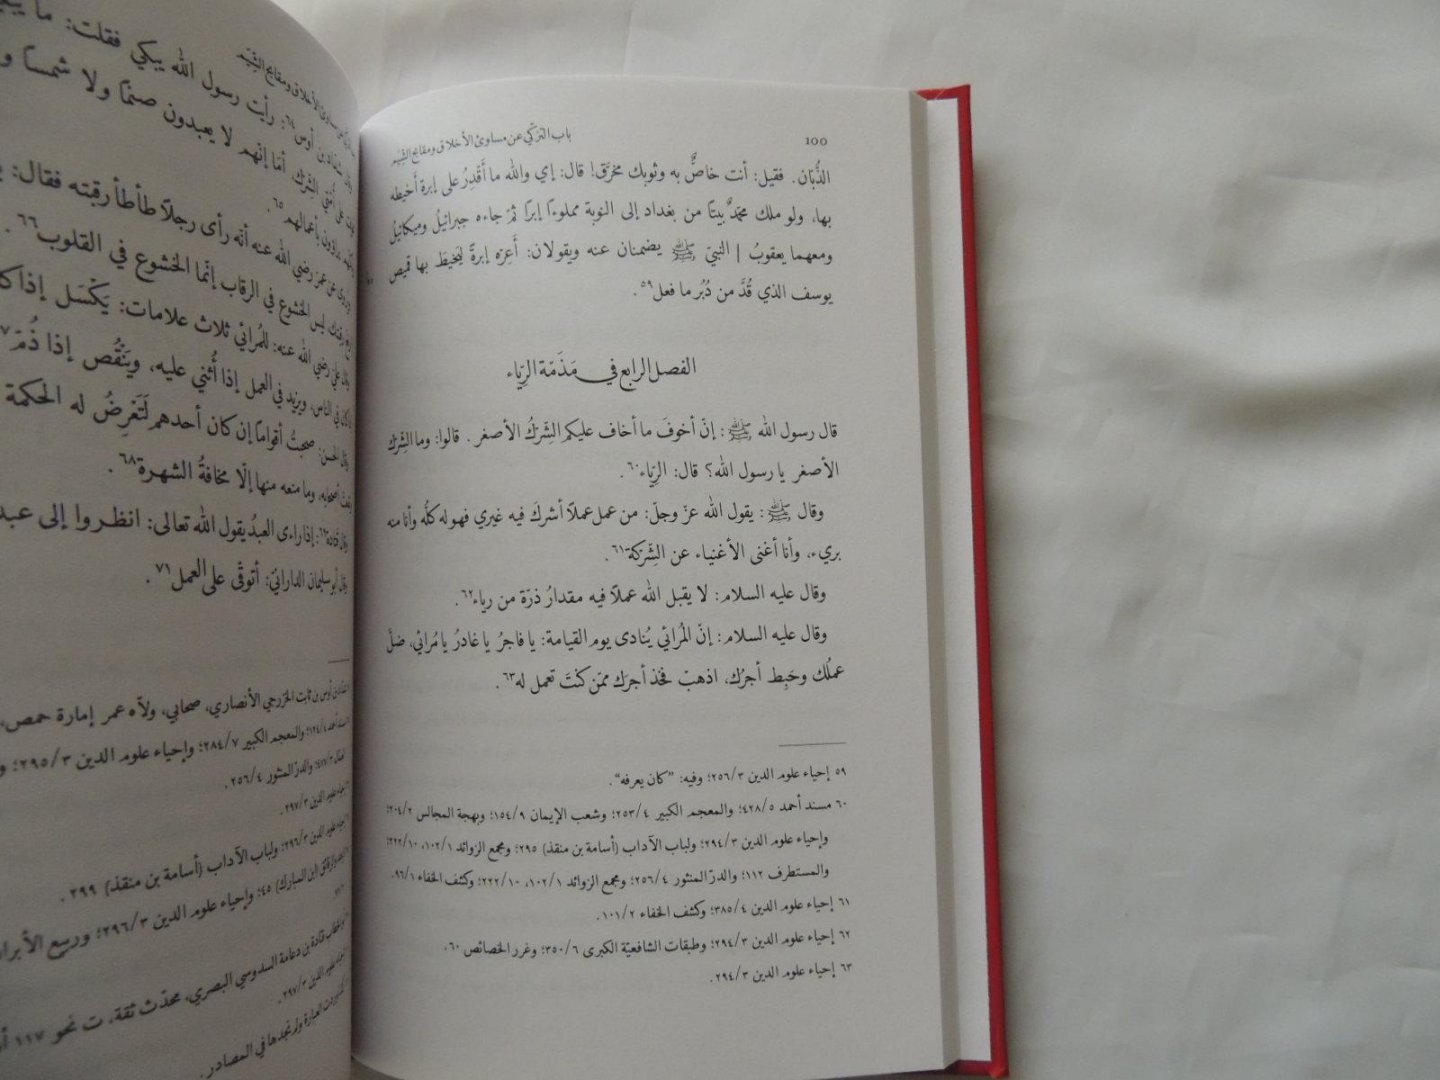 ١٥٥
باب التزكّي عن مساوئ الأخلاق ومقابح الشِيَم
الذُّبّان. فقيل: أنت خاصٌّ به وثوبك مخرّق! قال: إي والله ما أَقْدِرُ على إبرة أَخيطه
بها، ولو ملك محمّدٌ بيتًا من بغداد إلى النوبة مملوءًا إبرًا ثمّ جاءه جبرائيلُ وميكائيلُ
ومعهما يعقوبُ | النبيّ ﷺ يضمنان عنه ويقولان: أَعِرْه إبرةً ليَخيطَ بها قميص
يوسف الذي قُدَّ من دُبُر ما فعل٥٩.
الفصل الرابع في مَذَمّة الرِياء
قال رسول الله ﷺ: إنّ أخوفَ ما أخاف عليكم الشِركُ الأصغر. قالوا: وما الشِرك
الأصغر يا رسول الله؟ قال: الرِياء٦٠.
وقال ﷺ: يقول الله عزّ وجلّ: من عمل عملًا أشركَ فيه غيري فهو له كلُّه وأنا منه
بريء، وأنا أغنى الأغنياء عن الشِركة٦١.
وقال عليه السلام: لا يقبل الله عملًا فيه مقدارُ ذرّة من رياء٦٢.
وقال عليه السلام: إنّ المُرائي يُنادى يوم القيامة: يا فاجرُ يا غادرُ يا مُرائي، ضلّ
عملُك وحَبِط أجرُك، اذهبْ فخذ أجرَك ممّن كنتَ تعمل له٦٣.
٥٩ إحياء علوم الدين ٢٥٦/٣؛ وفيه: "كان يعرفه".
٦٠ مسند أحمد ٤٢٨/٥؛ والمعجم الكبير ٢٥٣/٤؛ وشعب الإيمان ١٥٤/٩؛ وبهجة المجالس ٢٠٤/٢؛
وإحياء علوم الدين ٢٩٤/٣؛ ولباب الآداب (أسامة بن منقذ) ٢٩٥؛ ومجمع الزوائد ١٠٢/١، ٢٢٢/١٠؛
والمستطرف ١١٢؛ والدرّ المنثور ٢٥٦/٤؛ ومجمع الزوائد ١٠٢/١، ٢٢٢/١٠؛ وكشف الخفاء ٩٦/١.
٦١ إحياء علوم الدين ٣٨٥/٤؛ وكشف الخفاء ١٠١/٢.
٦٢ إحياء علوم الدين ٢٩٤/٣؛ وطبقات الشافعيّة الكبرى ٣٥٠/٦؛ وغرر الخصائص ٦٠.
٦٣ إحياء علوم الدين ٢٩٤/٣.
أوس٦٤: رأيت رسول الله يبكي فقلت: ما
الشِرك، أمَا إنّهم لا يعبدون صنمًا ولا شمسًا
بأعمالهم٦٥.
عمر رضي الله عنه أنّه رأى رجلًا طأطأ رقبته فقال:
ليس الخشوع في الرقاب إنّما الخشوع في القلوب٦٦.
رضي الله عنه: للمُرائي ثلاث علامات: يَكْسَل إذا
في الناس، ويزيد في العمل إذا أُثني عليه، ويَنْقُص إذا ذُمّ
الحسن: صحبتُ أقوامًا إن كان أحدهم لَتَعْرِضُ له الحكمة
وما منعه منها إلّا مخافةُ الشهرة٦٨.
إذا راءى العبدُ يقول الله تعالى: انظروا إلى
أبو سليمان الداراني: أتوقّى على العمل٧١.
أوس بن ثابت الخزرجي الأنصاري، صحابي، ولّاه عمر إمارة حمص،
والمعجم الكبير ٢٨٤/٧؛ وإحياء علوم الدين ٢٩٥/٣؛
والدرّ المنثور ٢٥٦/٤.
علوم الدين ٢٩٧/٣.
الدين ٢٩٦/٣؛ ولباب الآداب (أسامة بن منقذ) ٢٩٩.
(ابن المبارك) ٤٥؛ وإحياء علوم الدين ٢٩٦/٣؛ وربيع
قتادة بن دعامة السدوسي البصري، محدّث ثقة، ت نحو ١١٧
الدين ٢٩٧/٣.
العبارة ولم نجدها في المصادر.